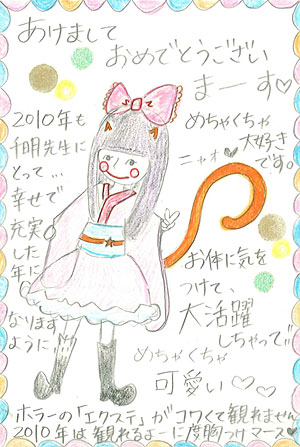 あけまして
おめでとうござい
まーす♡
2010年も
千明先生に
とって…
幸せで
充実
した
年に
なりはす
ように、
めちゃくちゃ
大好き
です。
ニャオ♥
お体に気を
つけて、
大活躍
しちゃって♡
めちゃくちゃ
可愛い♡♡
ホラーの「エクステ」がコワくて観れません
2010年は観れるよーに度胸つけマース♡